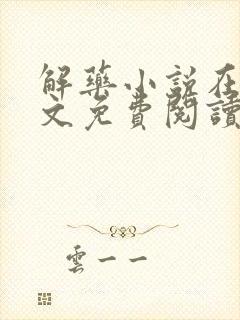 解藥小說在
文免費閱讀
雲一一